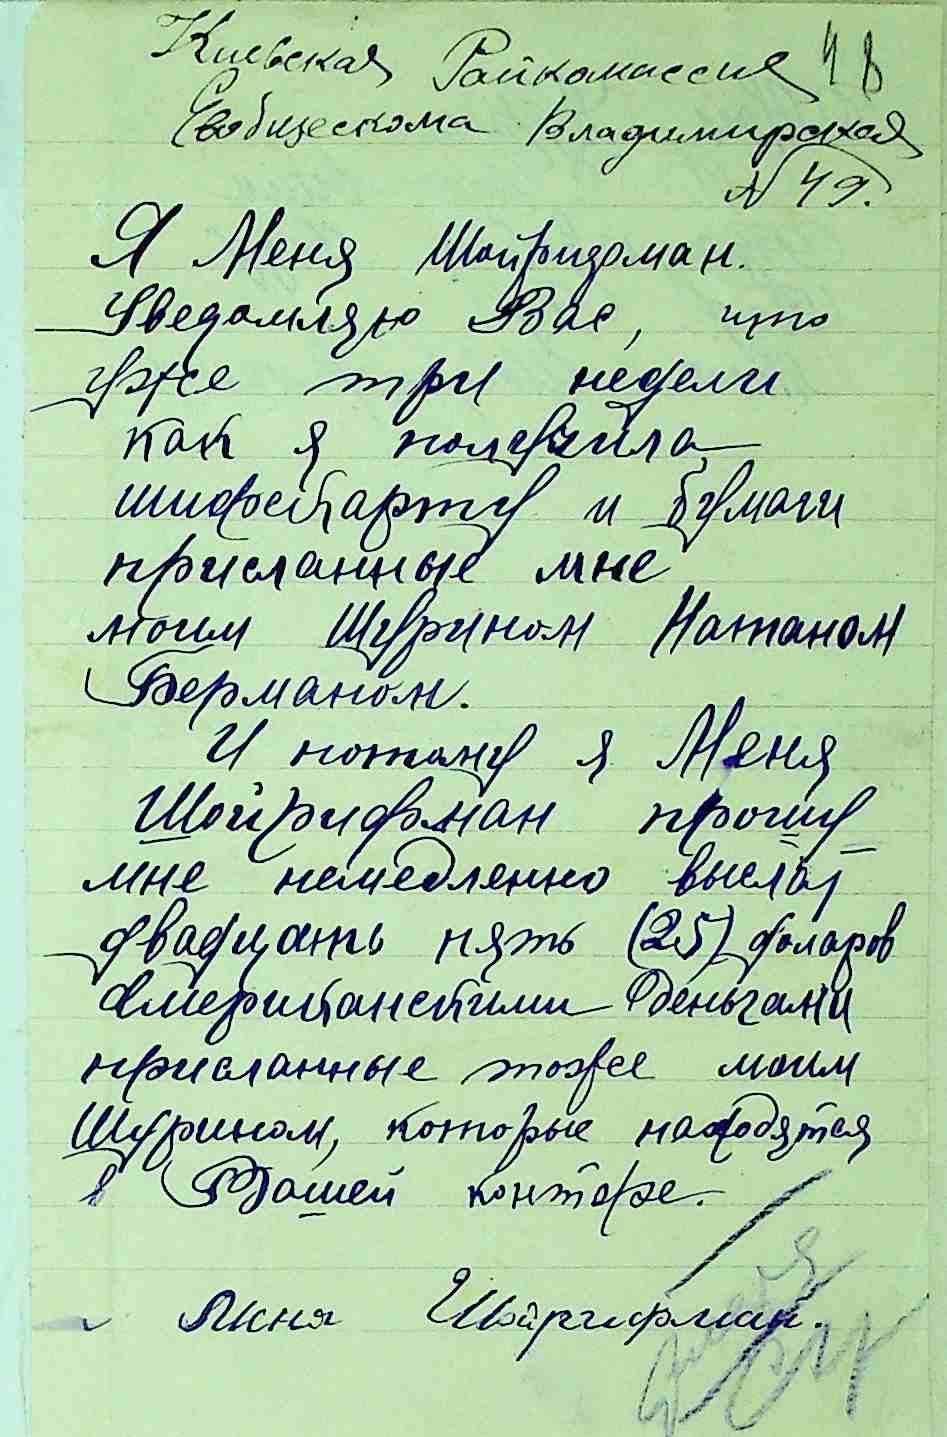 Киевская Райкомиссия 48
Евобщескома Владимирская
N 49.
Я Меня Шойридман.
Уведомляю Вас, что
уже три недели
как я получила
шифскарту и бумаги
присланные мне
моим Шурином Натаном
Берманом.
И потому я Меня
Шойрифман прошу
мне немедленно выслат
двадцать пять (25) доларов
Американскими деньгами
присланные тоже моим
Шурином, которые находятся
в Вашей конторе.
Мкня Шойрифман.